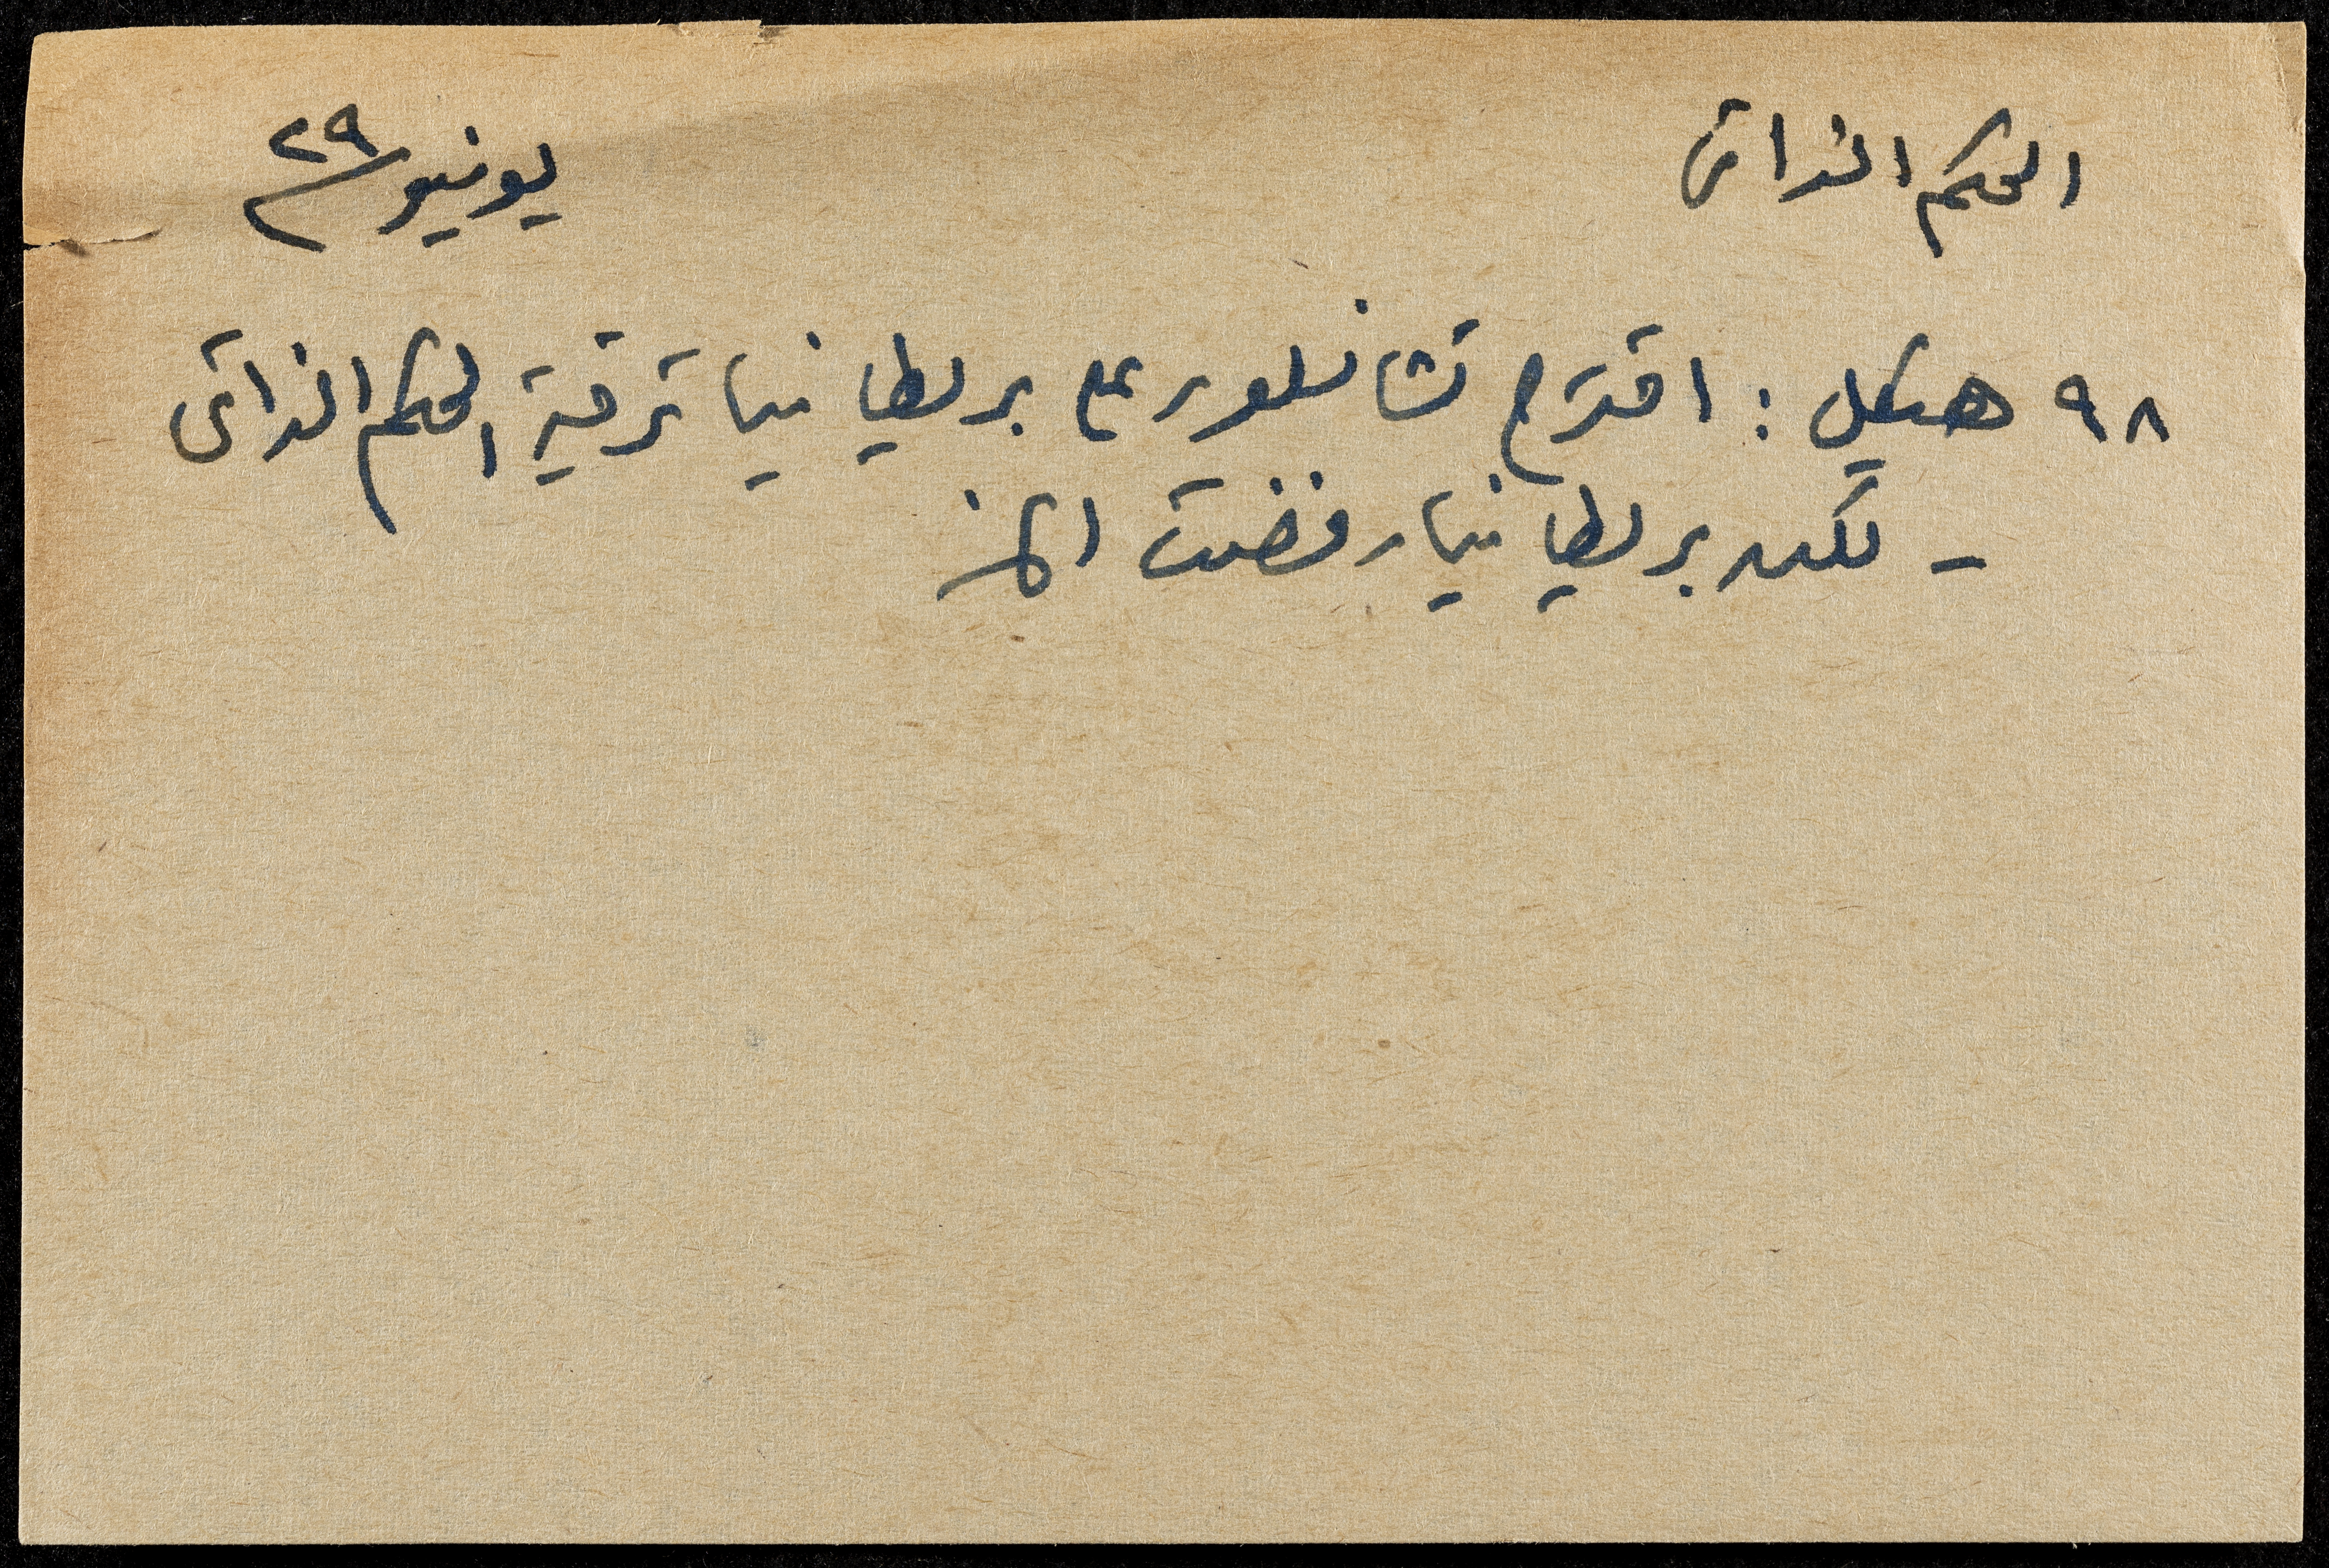 الحكم الذاتى
يونيو ٢٩
٩٨ هيكل : اقترح تشانسلور على بريطانيا ترقية الحكم الذاتى
- لكن بريطانيا رفضت